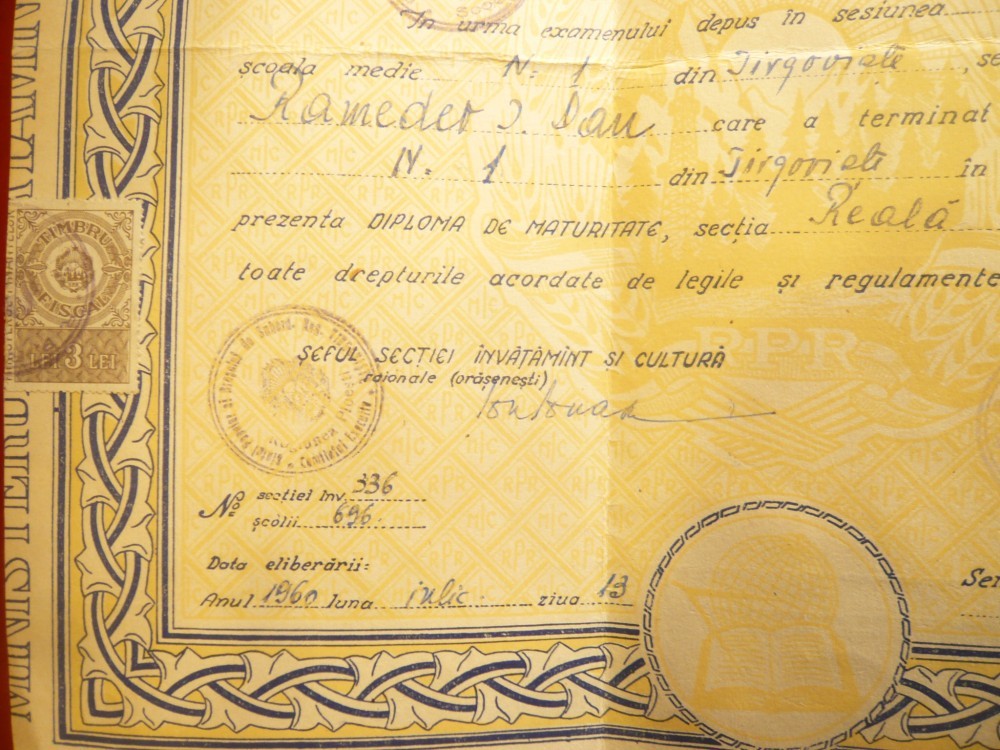 În urma examenului depus în sesiunea
școala medie N. 1 din Tîrgoviște, se
Ramedet I. Dan care a terminat
N. 1 din Tîrgoviște în
prezenta DIPLOMA DE MATURITATE, secția Reală
toate drepturile acordate de legile și regulamente
TIMBRU
FISCAL
LEI 3 LEI
ȘEFUL SECȚIEI ÎNVĂȚĂMÎNT ȘI CULTURĂ
raionale (orășenești)
R·P·R
No secției înv. 336
școlii 696.
Data eliberării:
Anul 1960 luna iulie ziua 13